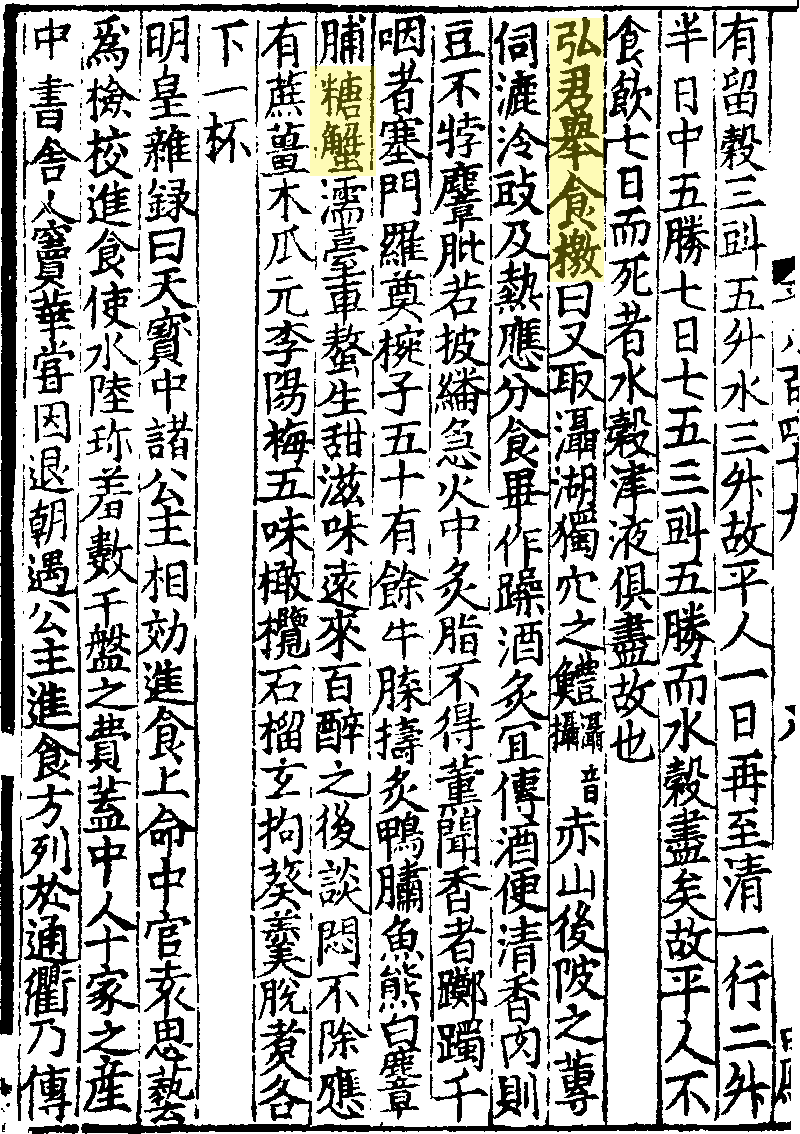 有留穀三㪷五升水三升故平人一日再至清一行二升
半日中五勝七日七五三㪷五勝而水穀盡矣故平人不
食飲七日而死者水穀津液俱盡故也
弘君舉食檄曰又取灄湖獨穴之鱧灄音攝赤山後陂之蓴
伺漉冷豉及熱應分食畢作躁酒炙宜傳酒便清香肉則
豆不牸麞肶若披繙急火中炙脂不得薰聞香者躑躅千
咽者塞門羅奠椀子五十有餘牛𦞃擣炙鴨臛魚熊白麞
脯糖蟹濡臺車螯生甜滋味遠來百醉之後談悶不除應
有蔗薑木瓜元李陽梅五味橄欖石榴玄拘葵羹脫煑各
下一杯
明皇雜録曰天寶中諸公主相効進食上命中官袁思藝
為檢校進食使水陸珎羞數千盤之費蓋中人十家之産
中書舍人竇華甞因退朝遇公主進食方列於通衢乃傳